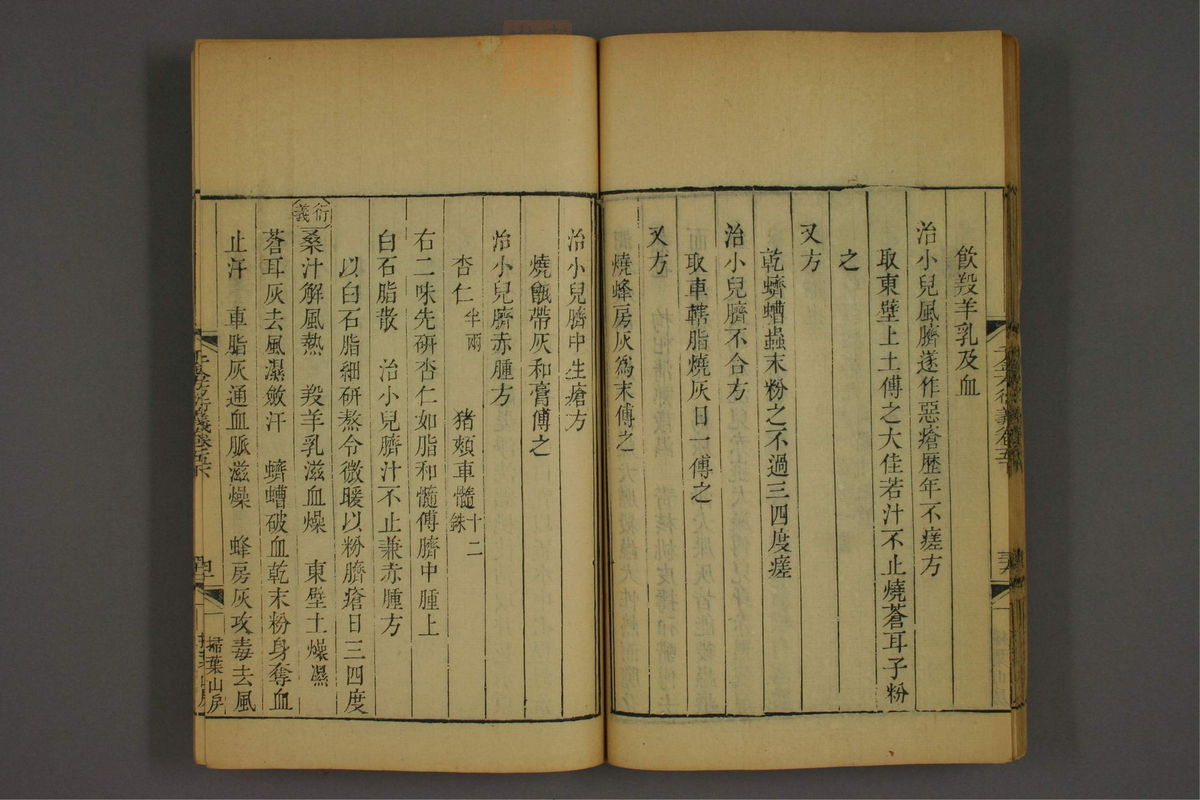 飲羖羊乳及血
治小兒風臍遂作惡瘡歷年不瘥方
取東壁上土傅之大佳若汁不止燒蒼耳子粉
之
又方
乾蠐螬蟲末粉之不過三四度瘥
治小兒臍不合方
取車轄脂燒灰日一傅之
又方
燒蜂房灰爲末傅之
治小兒臍中生瘡方
燒甑帶灰和膏傅之
治小兒臍赤腫方
杏仁半兩 猪頰車髓十二銖
右二味先研杏仁如脂和髓傅臍中腫上
白石脂散 治小兒臍汁不止兼赤腫方
以白石脂細研熬令微暖以粉臍瘡日三四度
衍義
桑汁解風熱 羖羊乳滋血燥 東壁土燥濕
蒼耳灰去風濕斂汗 蠐螬破血乾末粉身奪血
止汗 車脂灰通血脈滋燥 蜂房灰攻毒去風
掃葉山房